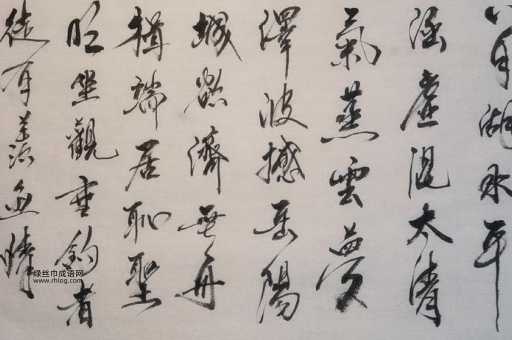 八月湖水平
涵虚混太清
氣蒸雲夢
澤波撼岳陽
城欲濟無舟
楫端居恥聖
明坐觀垂釣者
徒有羨魚情
绿丝巾成语网
www.rhlog.com